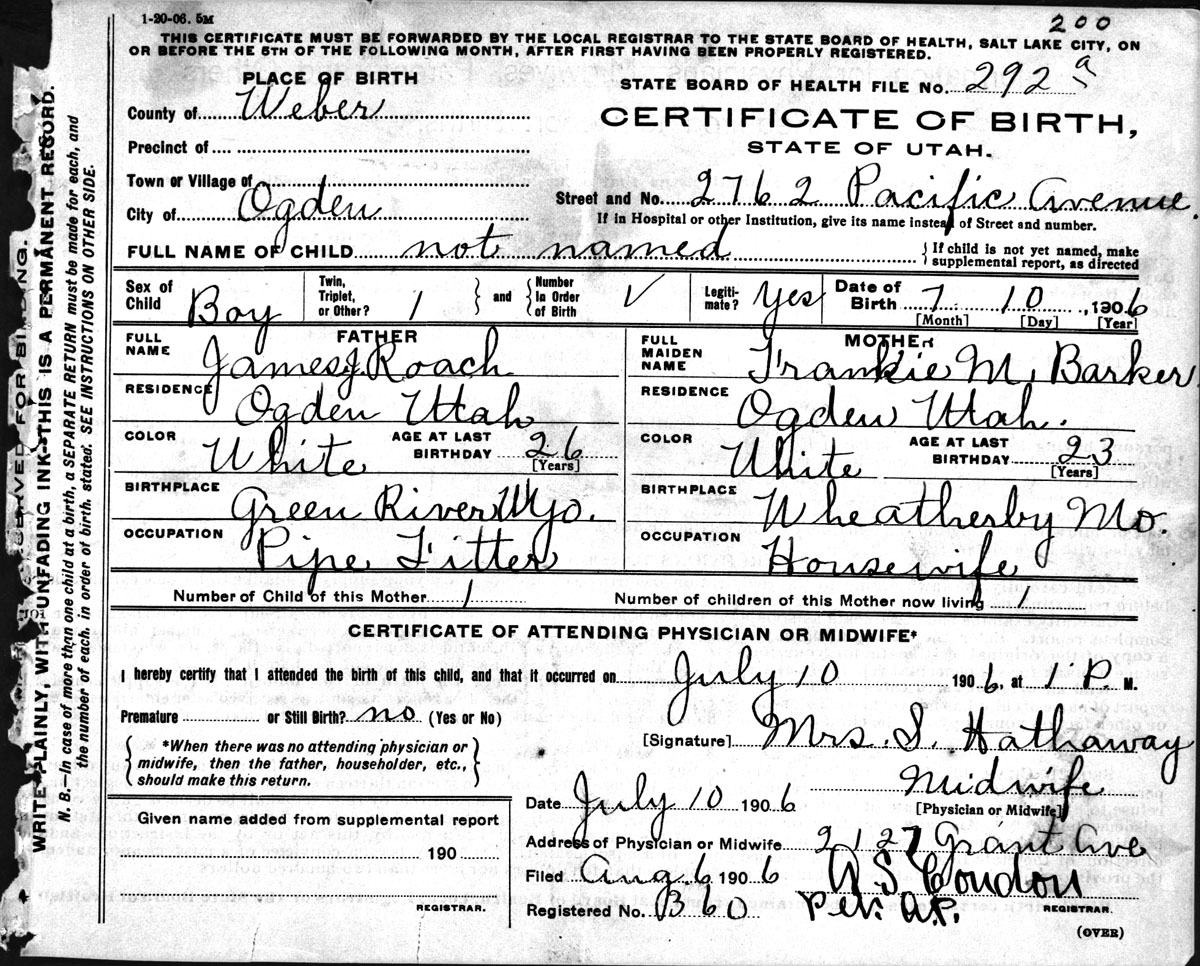 1-20-06. 5M
200
THIS CERTIFICATE MUST BE FORWARDED BY THE LOCAL REGISTRAR TO THE STATE BOARD OF HEALTH, SALT LAKE CITY, ON
OR BEFORE THE 5TH OF THE FOLLOWING MONTH, AFTER FIRST HAVING BEEN PROPERLY REGISTERED.
PLACE OF BIRTH
STATE BOARD OF HEALTH FILE No. 292 a
County of Weber
CERTIFICATE OF BIRTH,
Precinct of
STATE OF UTAH.
Town or Village of
City of Ogden
Street and No. 2762 Pacific Avenue.
If in Hospital or other Institution, give its name instead of Street and number.
FULL NAME OF CHILD not named
{ If child is not yet named, make
supplemental report, as directed
Sex of Child Boy
Twin, Triplet, or Other? 1
and
Number in Order of Birth V
Legitimate? Yes
Date of Birth 7 10, 1906
[Month] [Day] [Year]
FATHER
FULL NAME James J. Roach
RESIDENCE Ogden Utah
COLOR White
AGE AT LAST BIRTHDAY 26
[Years]
BIRTHPLACE Green River Wyo.
OCCUPATION Pipe Fitter
MOTHER
FULL MAIDEN NAME Frankie M. Barker
RESIDENCE Ogden Utah.
COLOR White
AGE AT LAST BIRTHDAY 23
[Years]
BIRTHPLACE Wheatherby Mo.
OCCUPATION Housewife
Number of Child of this Mother 1
Number of children of this Mother now living 1
CERTIFICATE OF ATTENDING PHYSICIAN OR MIDWIFE*
I hereby certify that I attended the birth of this child, and that it occurred on July 10 1906, at 1 P. M.
Premature or Still Birth? no (Yes or No)
{ *When there was no attending physician or
midwife, then the father, householder, etc.,
should make this return. }
[Signature] Mrs. S. Hathaway
Midwife
[Physician or Midwife]
Date July 10 1906
Address of Physician or Midwife 2127 Grant Ave
Filed Aug 6 1906
A S Condon
Per. A.P.
REGISTRAR.
Registered No. B 60
(OVER)
Given name added from supplemental report
190
REGISTRAR.
WRITE PLAINLY, WITH UNFADING INK—THIS IS A PERMANENT RECORD.
N. B.—In case of more than one child at a birth, a SEPARATE RETURN must be made for each, and
the number of each, in order of birth, stated. SEE INSTRUCTIONS ON OTHER SIDE.
FOR BINDING.